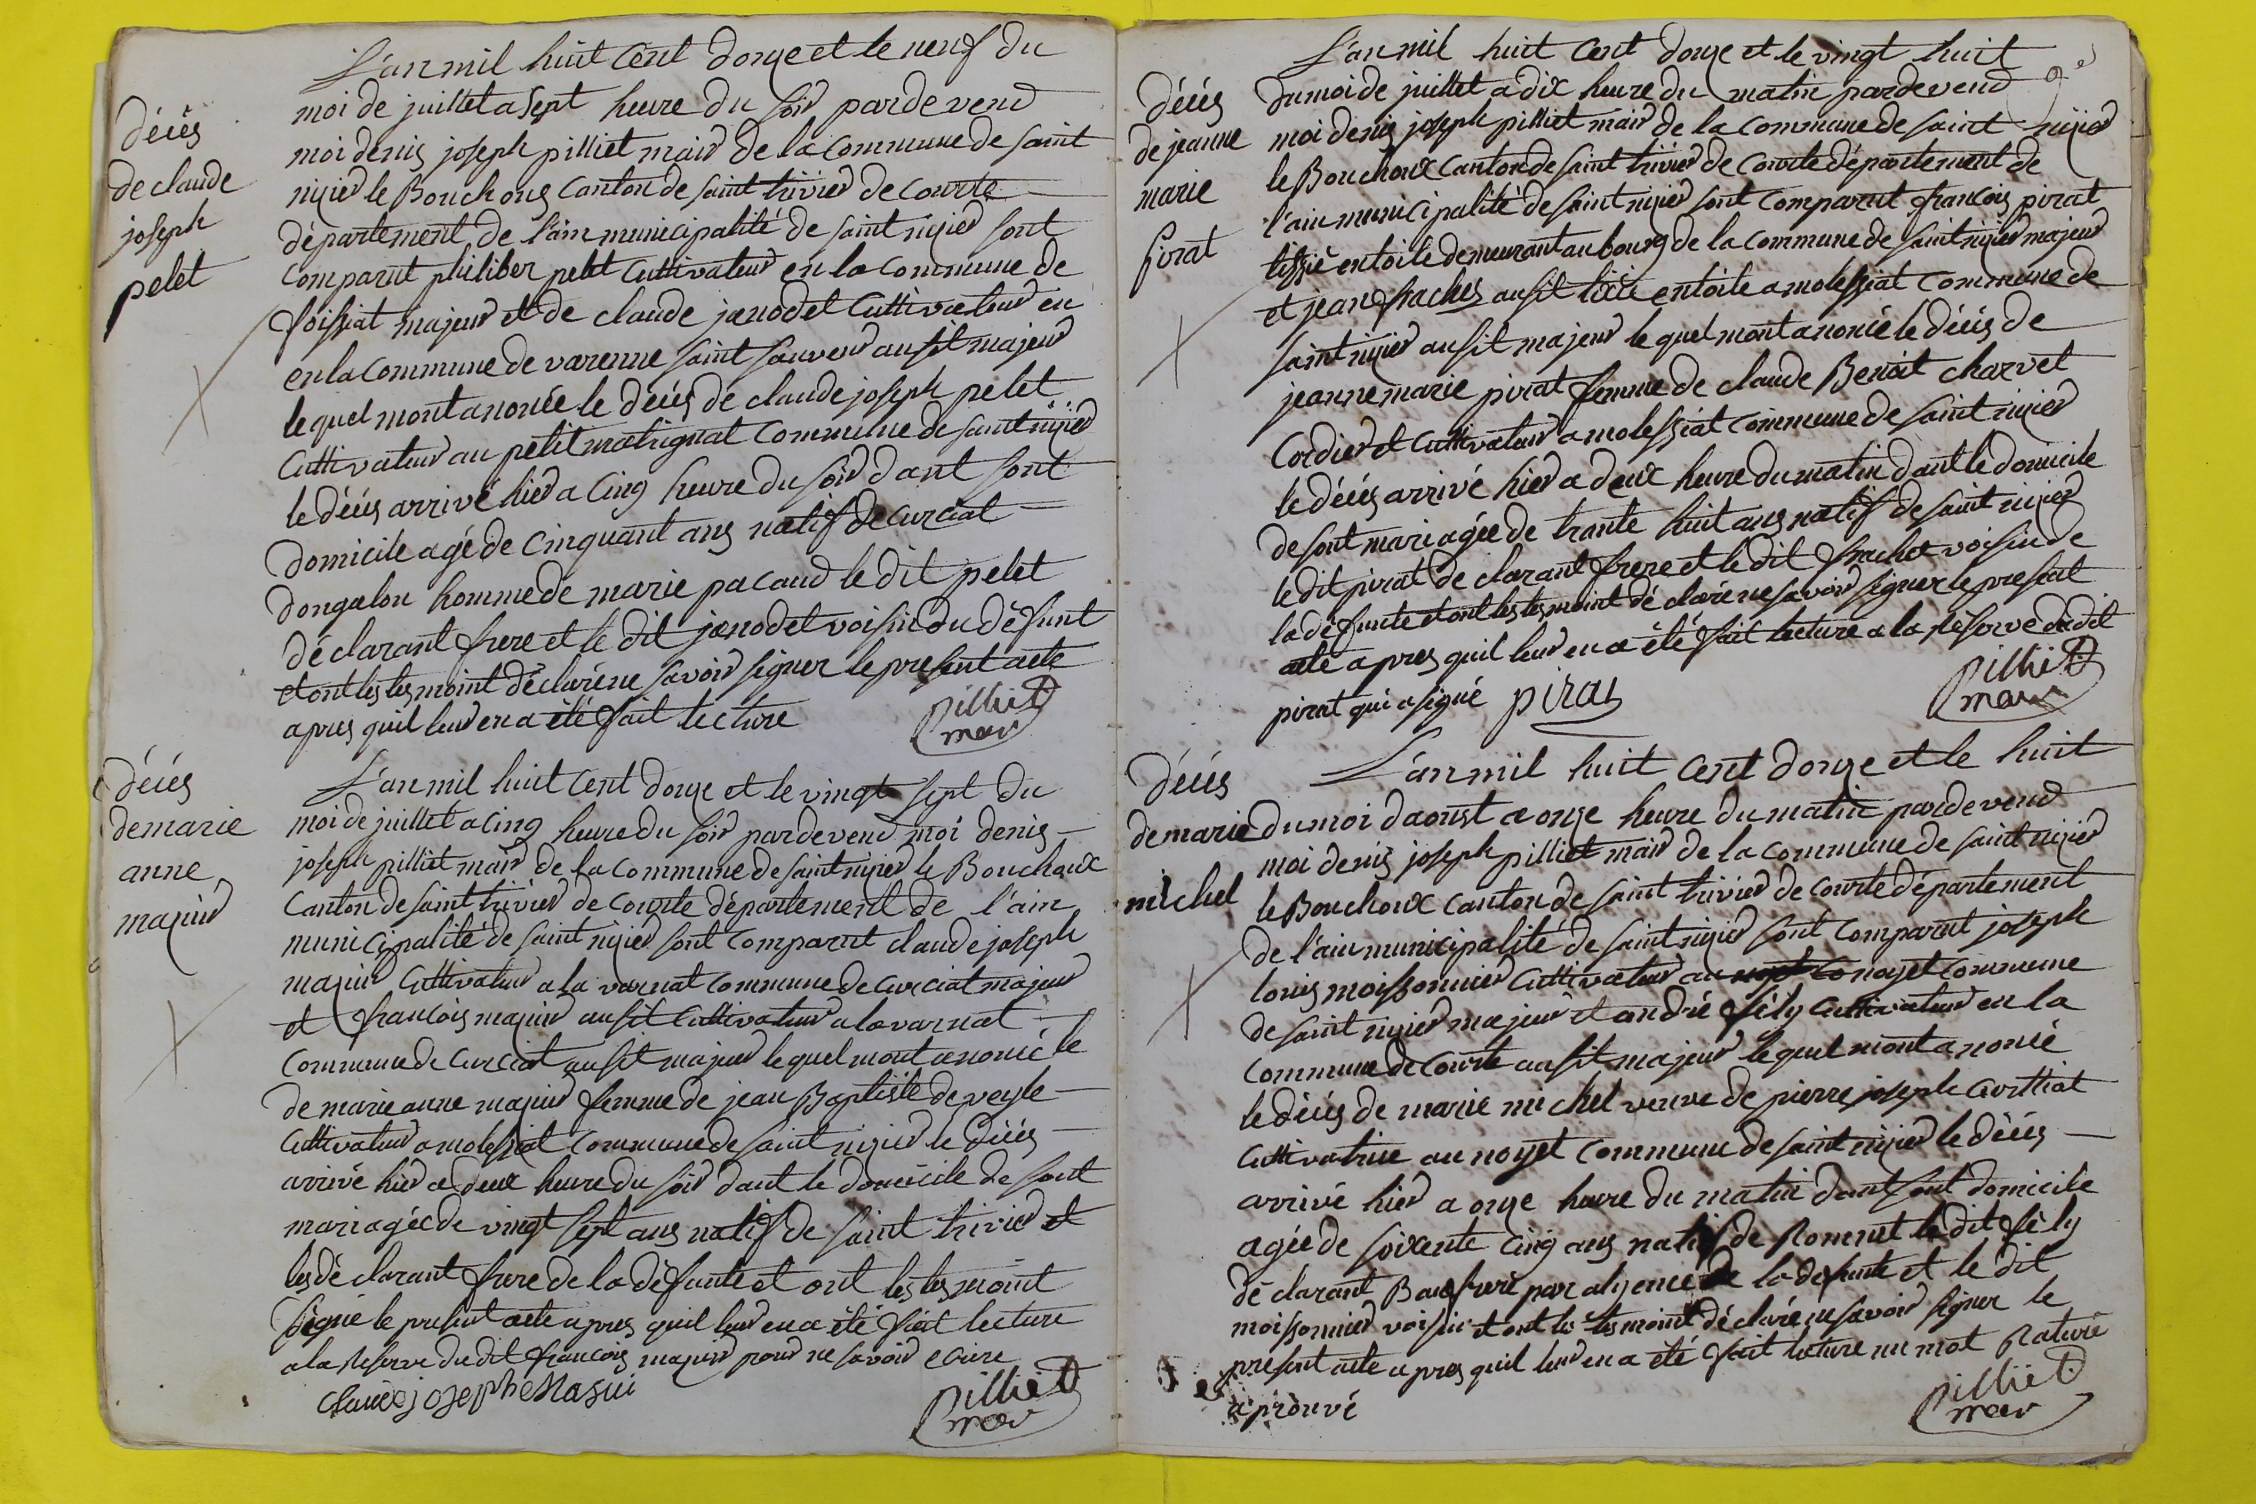 L'an mil huit cent douze et le neuf du
décès
de claude
joseph
pelet
moi de juillet a sept heure du soir pardevend
moi denis joseph pilliet mair de la commune de saint
nizier le Bouchoug canton de saint trivier de courte
département de l'ain municipalité de saint nizier sont
comparut philiber pelet cultivateur en la commune de
foissiat majeur et de claude janodet cultivateur en
en la commune de varenne saint sauveur ausit majeur
le quel mont anoncé le décès de claude joseph pelet
cultivateur au petit matignat commune de saint nizier
le décès arrivé hier a cinq heure du soir dant sont
domicile agé de cinquant ans natif de curciat
dongalon homme de marie pacaud le dit pelet
déclarant frere et le dit janodet voisin du défunt
et ont les tesmoint déclaré ne savoir signer le present acte
apres quil leur en a été fait lecture
pilliet
mair
L'an mil huit cent douze et le vingt sept du
décès
de marie
anne
majuir
moi de juillet a cinq heure du soir pardevend moi denis
joseph pilliet mair de la commune de saint nizier le Bouchoux
canton de saint trivier de courte département de l'ain
municipalité de saint nizier sont comparut claude joseph
majuir cultivateur a la varnat commune de curciat majeur
et francois majuir ausit cultivateur a la varnat
commune de curciat ausit majeur le quel mont anoncé le
de marie anne majuir femme de jean Baptiste deveyle
cultivateur a molessiat commune de saint nizier le décès
arrivé hier a deux heure du soir dant le domicile de sont
mari agée de vingt sept ans natif de saint trivier et
les déclarant frere de la défunte et ont les tesmoint
signé le present acte apres quil leur en a été fait lecture
a la reserve du dit francois majuir pour ne savoir ecrire
claude joseph Masui
pilliet
mair
L'an mil huit cent douze et le vingt huit
décès
de jeanne
marie
pirat
du moi de juillet a dix heure du matin pardevend
moi denis joseph pilliet mair de la commune de saint nizier
le Bouchoux canton de saint trivier de courte département de
l'ain municipalité de saint nizier sont comparut francois pirat
tissié en toile demeurant au bourg de la commune de saint nizier majeur
et jean frachet ausit tissié en toile a molessiat commune de
saint nizier ausit majeur le quel mont anoncé le décès de
jeanne marie pirat femme de claude Benoit charvet
cordier et cultivateur a molessiat commune de saint nizier
le décès arrivé hier a deux heure du matin dant le domicile
de sont mari agée de trante huit ans natif de saint nizier
le dit pirat declarant frere et le dit frachet voisin de
la défunte et ont les tesmoint déclaré ne savoir signer le present
acte apres quil leur en a été fait lecture a la reserve du dit
pirat qui a signé pirat
pilliet
mair
L'an mil huit cent douze et le huit
décès
de marie
michel
du moi daoust a onze heure du matin pardevend
moi denis joseph pilliet mair de la commune de saint nizier
le Bouchoux canton de saint trivier de courte département
de l'ain municipalité de saint nizier sont comparut joseph
louis moissonnier cultivateur au noyet commune
de saint nizier majeur et andré fély cultivateur en la
commune de courte ausit majeur le quel mont anoncé
le décès de marie michel veuve de pierre joseph curthiat
cultivatrice au noyet commune de saint nizier le décès
arrivé hier a onze heure du matin dant sont domicile
agée de soixente cinq ans natif de Romnet le dit fély
déclarant Baufrere par alyence de la defunte et le dit
moissonnier voisin et ont les tesmoint déclaré ne savoir signer le
present acte apres quil leur en a été fait lecture un mot Raturé
aprouvé
pilliet
mair